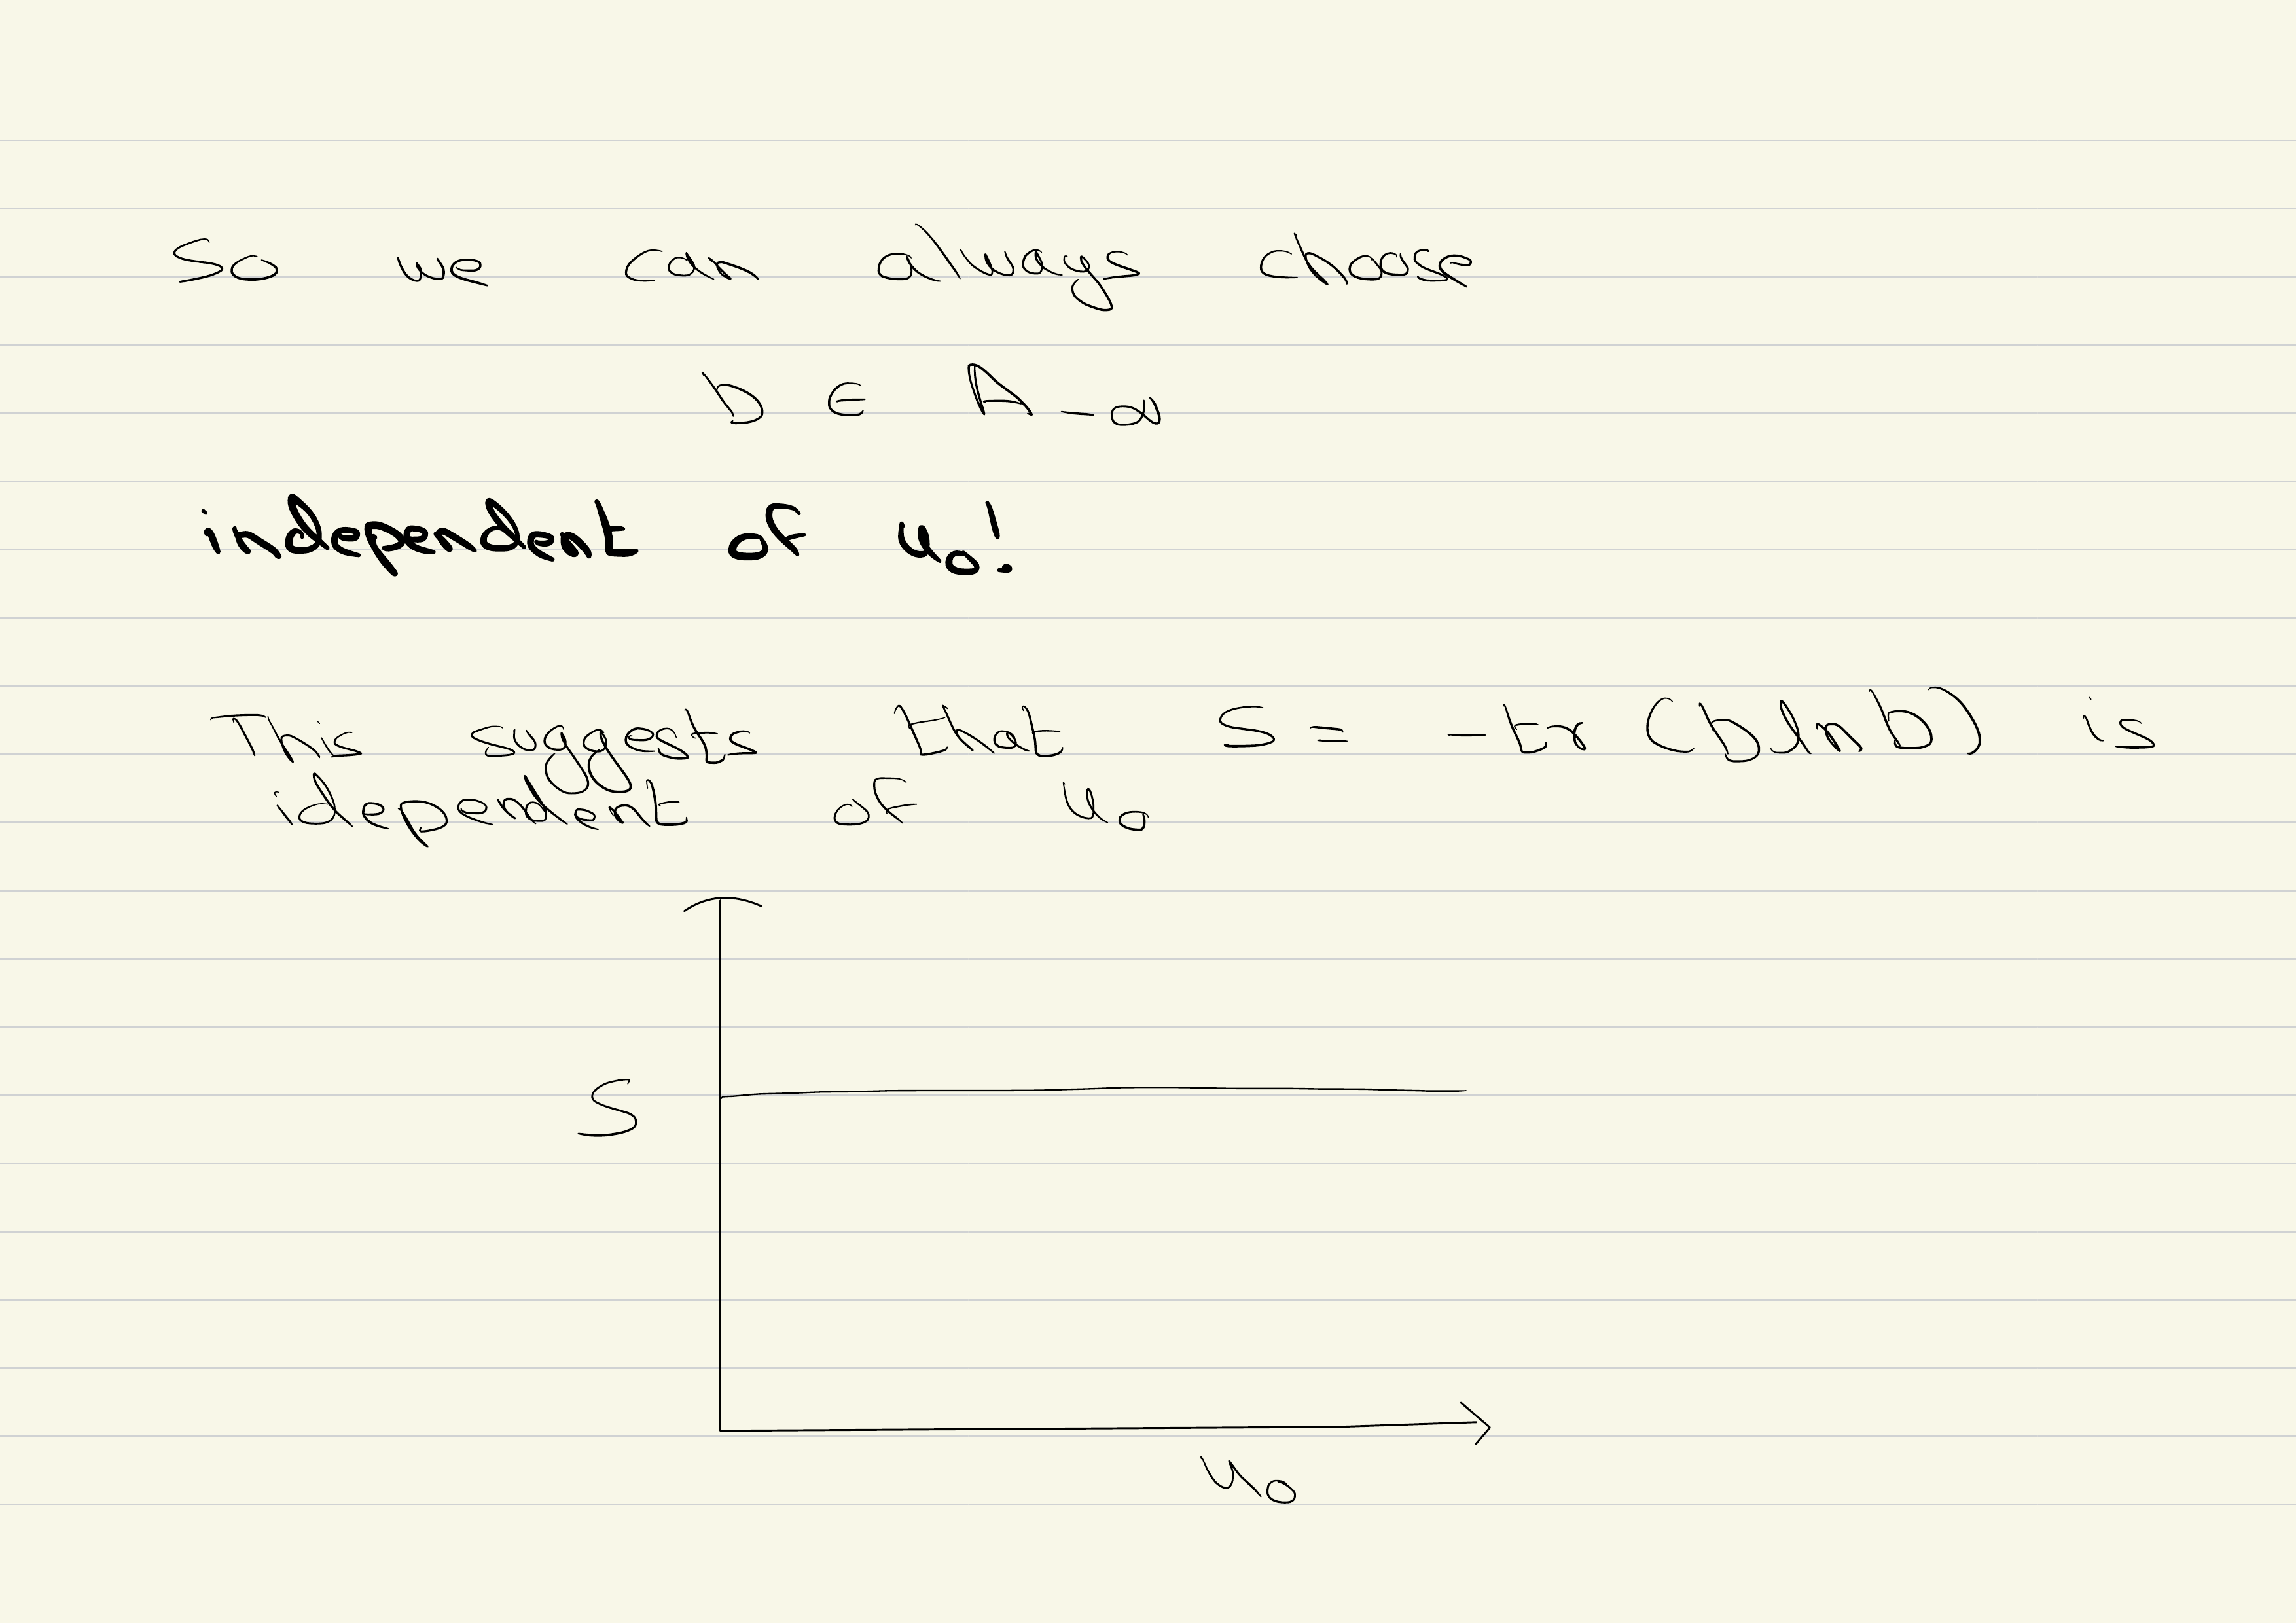 So we can always choose
b ∈ A_-∞
independent of u₀!
This suggests that S = -tr (b ln b) is
idependent of u₀
S
u₀